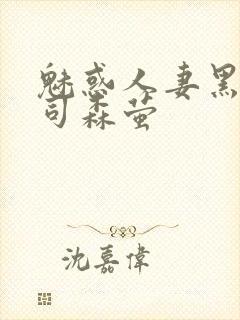 魅惑人妻黑
司森萤
沈嘉偉